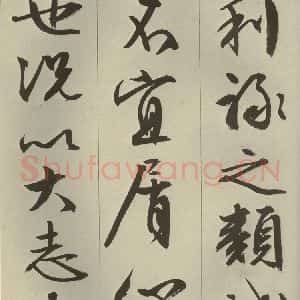 利祿之類
不宜屑
也況以大志
Shufawang.CN